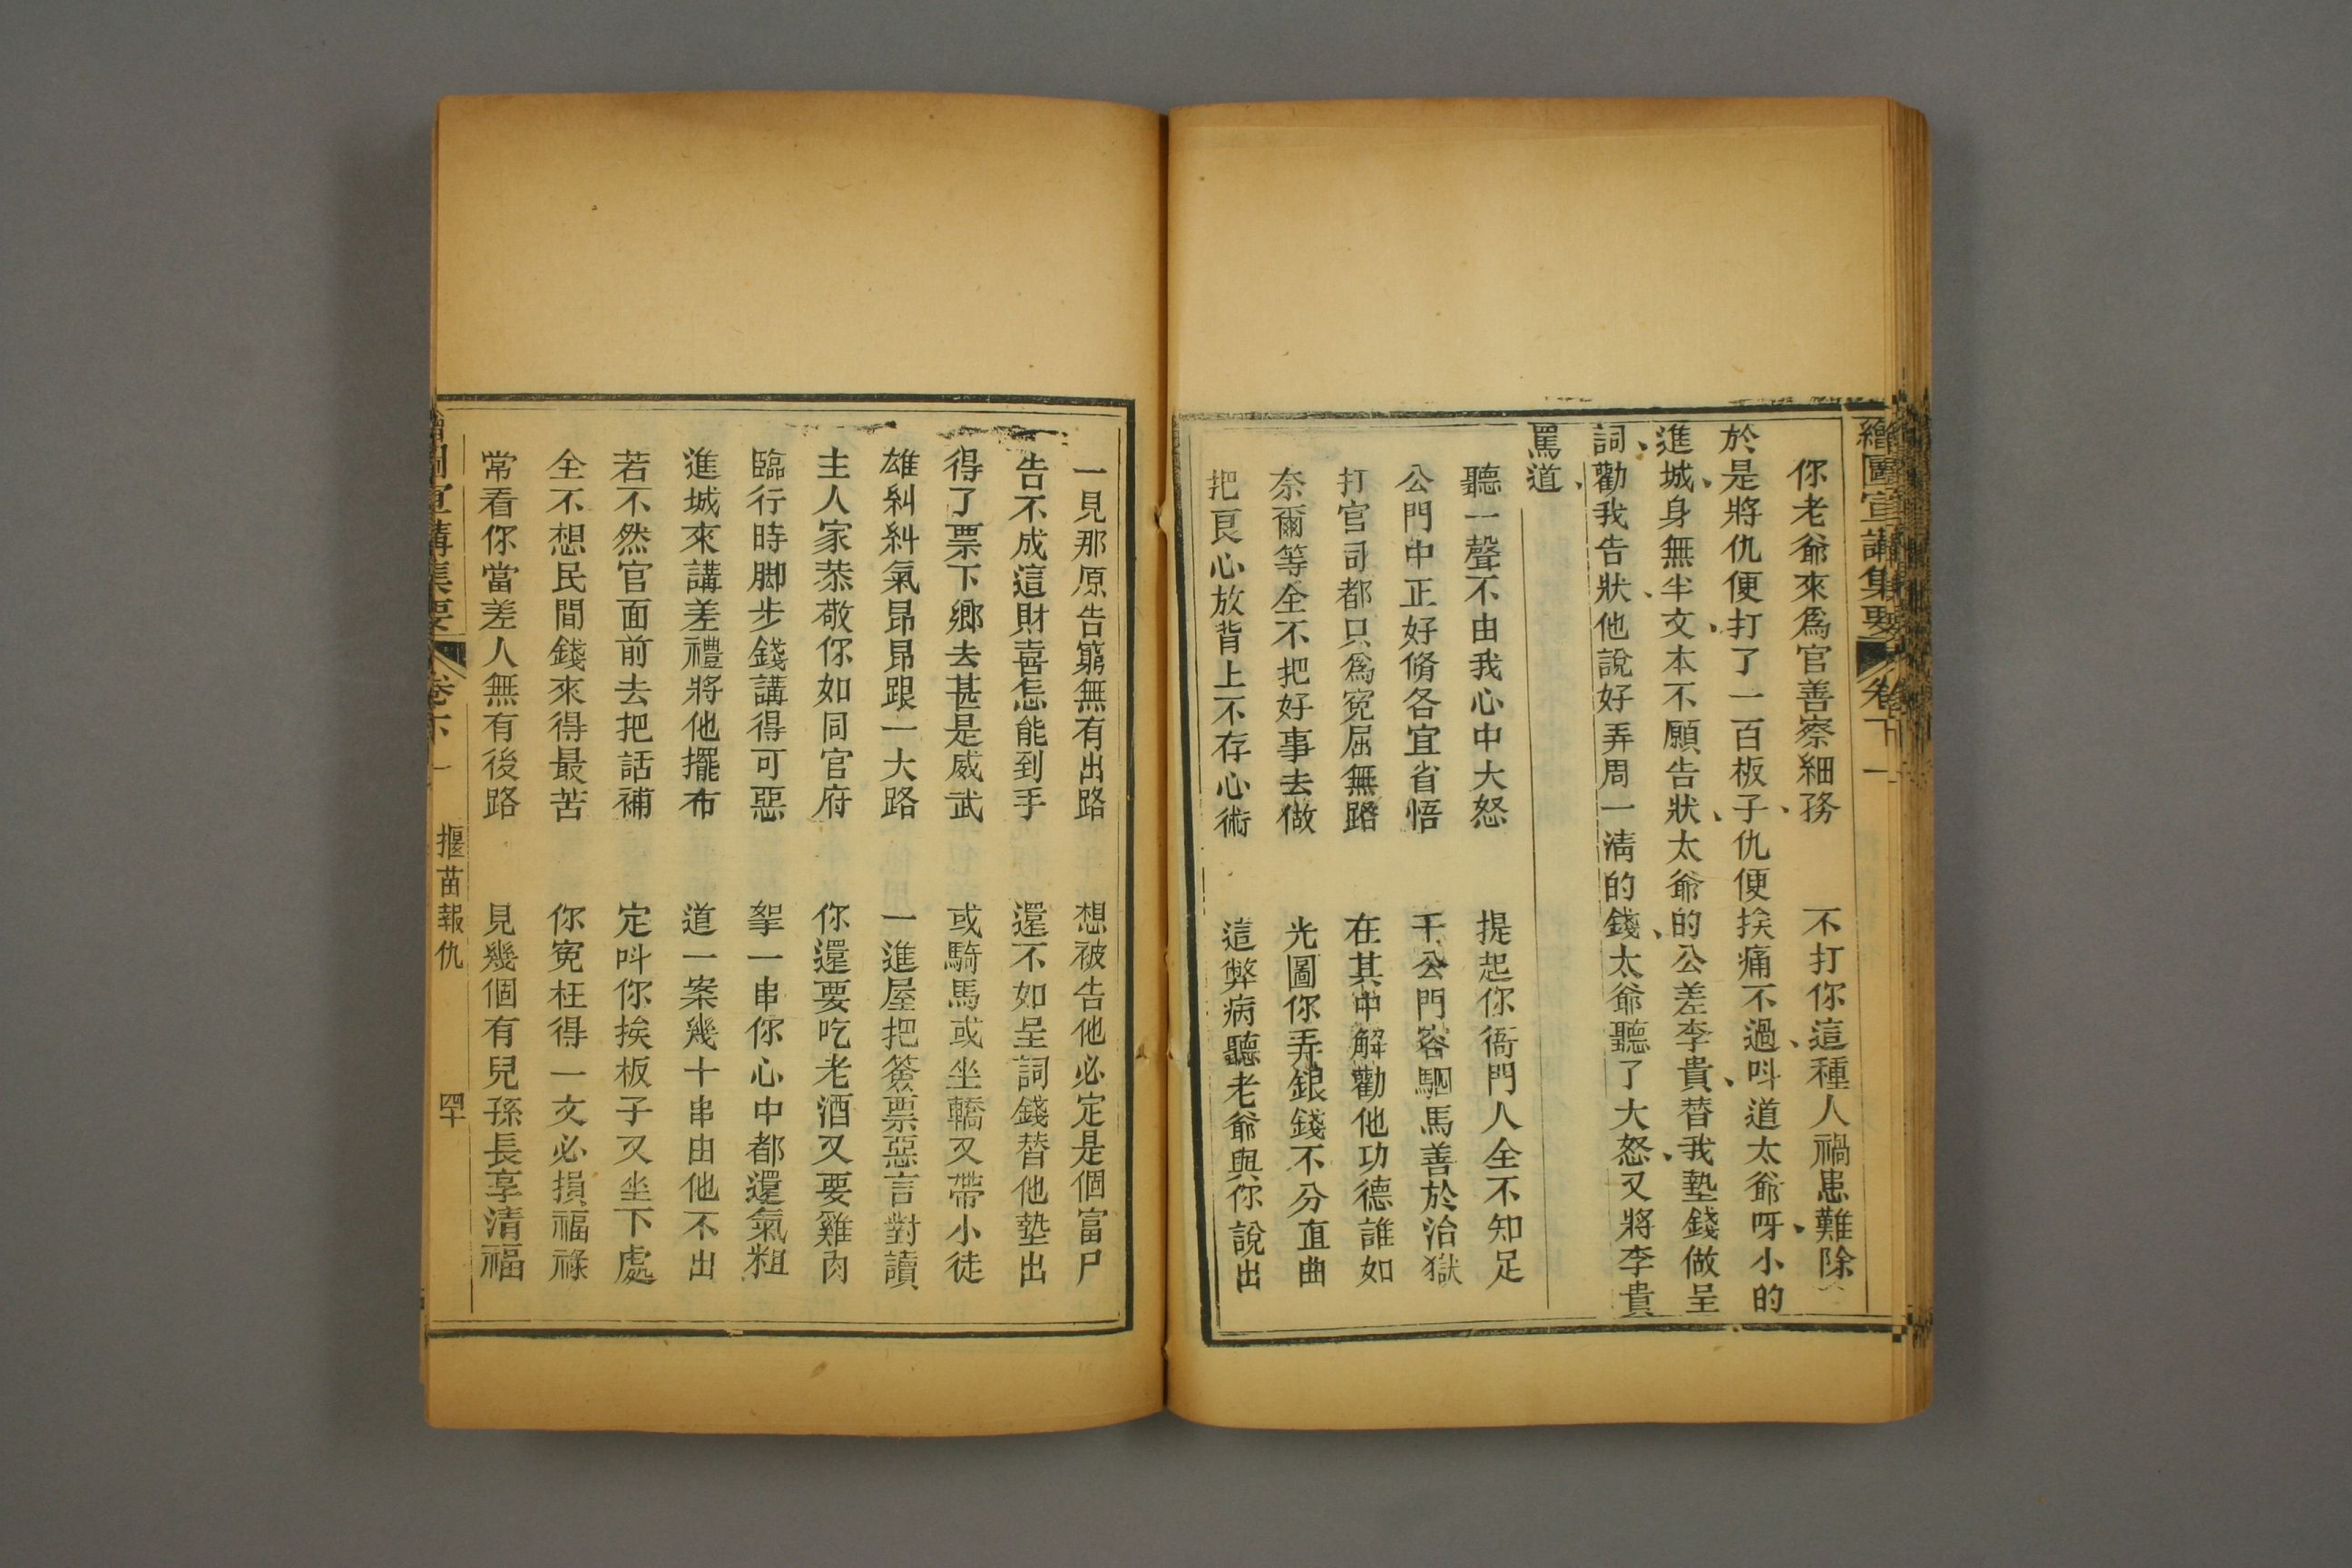 繪圖宣講集要 卷下一
你老爺來爲官善察細務 不打你這種人禍患難除
於是將仇便打了一百板子、仇便挨痛不過、呌道太爺呀、小的
進城、身無半文、本不願告狀、太爺的公差李貴、替我墊錢做呈
詞、勸我告狀、他說好弄周一淸的錢、太爺聽了大怒、又將李貴
罵道、
聽一聲不由我心中大怒 提起你衙門人全不知足
公門中正好脩各宜省悟 干公門容駟馬善於治獄
打官司都只爲寃屈無路 在其中解勸他功德誰如
奈爾等全不把好事去做 光圖你弄銀錢不分直曲
把良心放背上不存心術 這弊病聽老爺與你說出
一見那原告窮無有出路 想被告他必定是個富戶
告不成這財喜怎能到手 還不如呈詞錢替他墊出
得了票下鄉去甚是威武 或騎馬或坐轎又帶小徒
雄糾糾氣昂昂跟一大路 一進屋把簽票惡言對讀
主人家恭敬你如同官府 你還要吃老酒又要雞肉
臨行時脚步錢講得可惡 拏一串你心中都還氣粗
進城來講差禮將他擺布 道一案幾十串由他不出
若不然官面前去把話補 定呌你挨板子又坐下處
全不想民間錢來得最苦 你寃枉得一文必損福祿
常看你當差人無有後路 見幾個有兒孫長享清福
宣講集要 卷下一 揠苗報仇 四十